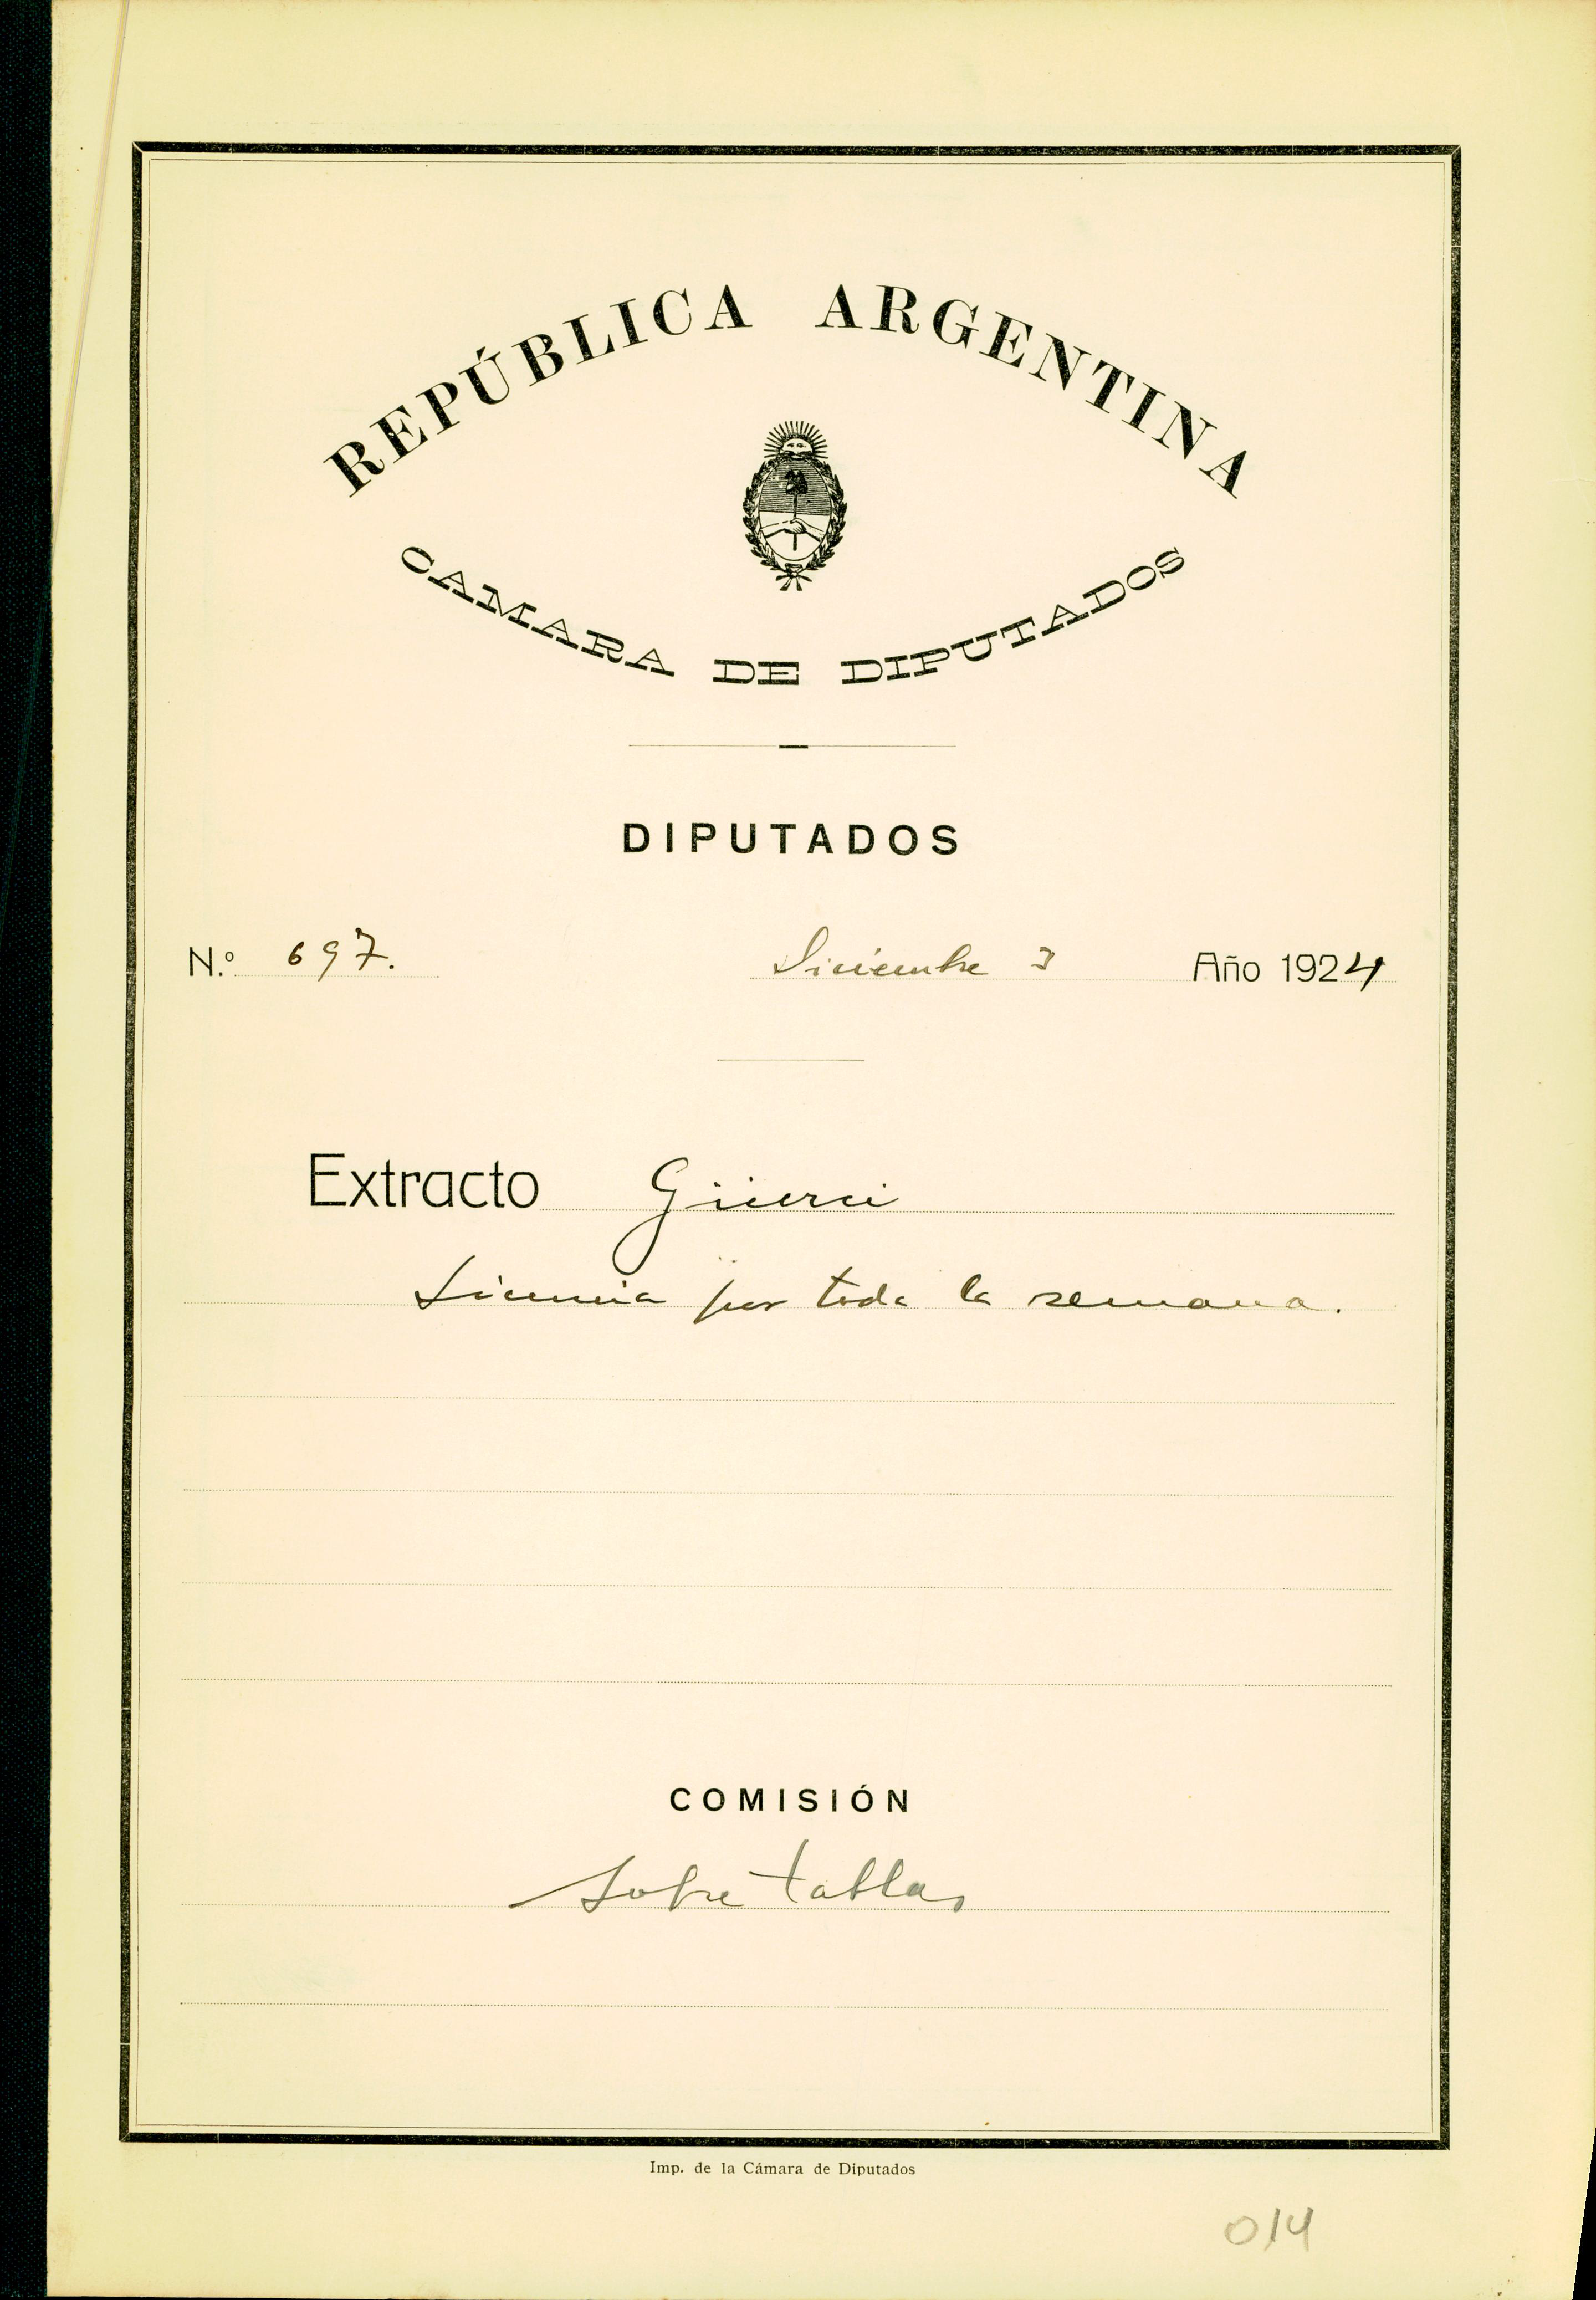 REPÚBLICA ARGENTINA
CAMARA DE DIPUTADOS
DIPUTADOS
N.º 697. Diciembre 3 Año 1924
Extracto
Licencia por toda la semana.
COMISIÓN
Sobre tablas
Imp. de la Cámara de Diputados
014